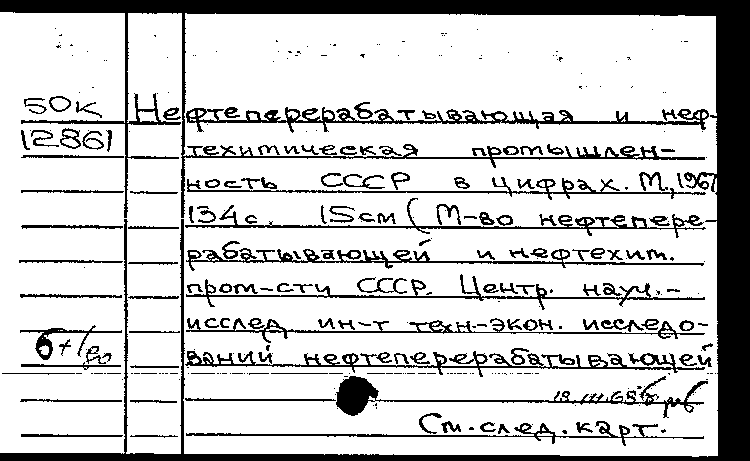 50К Нефтеперерабатывающая и неф-
12861 техимическая промышлен-
ность СССР в цифрах. М., 1967
134с. 15см (М-во нефтепере-
рабатывающей и нефтехим.
пром-сти СССР. Центр. науч.-
исслед. ин-т техн.-экон. исследо-
ваний нефтеперерабатывающей
18.III.68
См. след. карт.